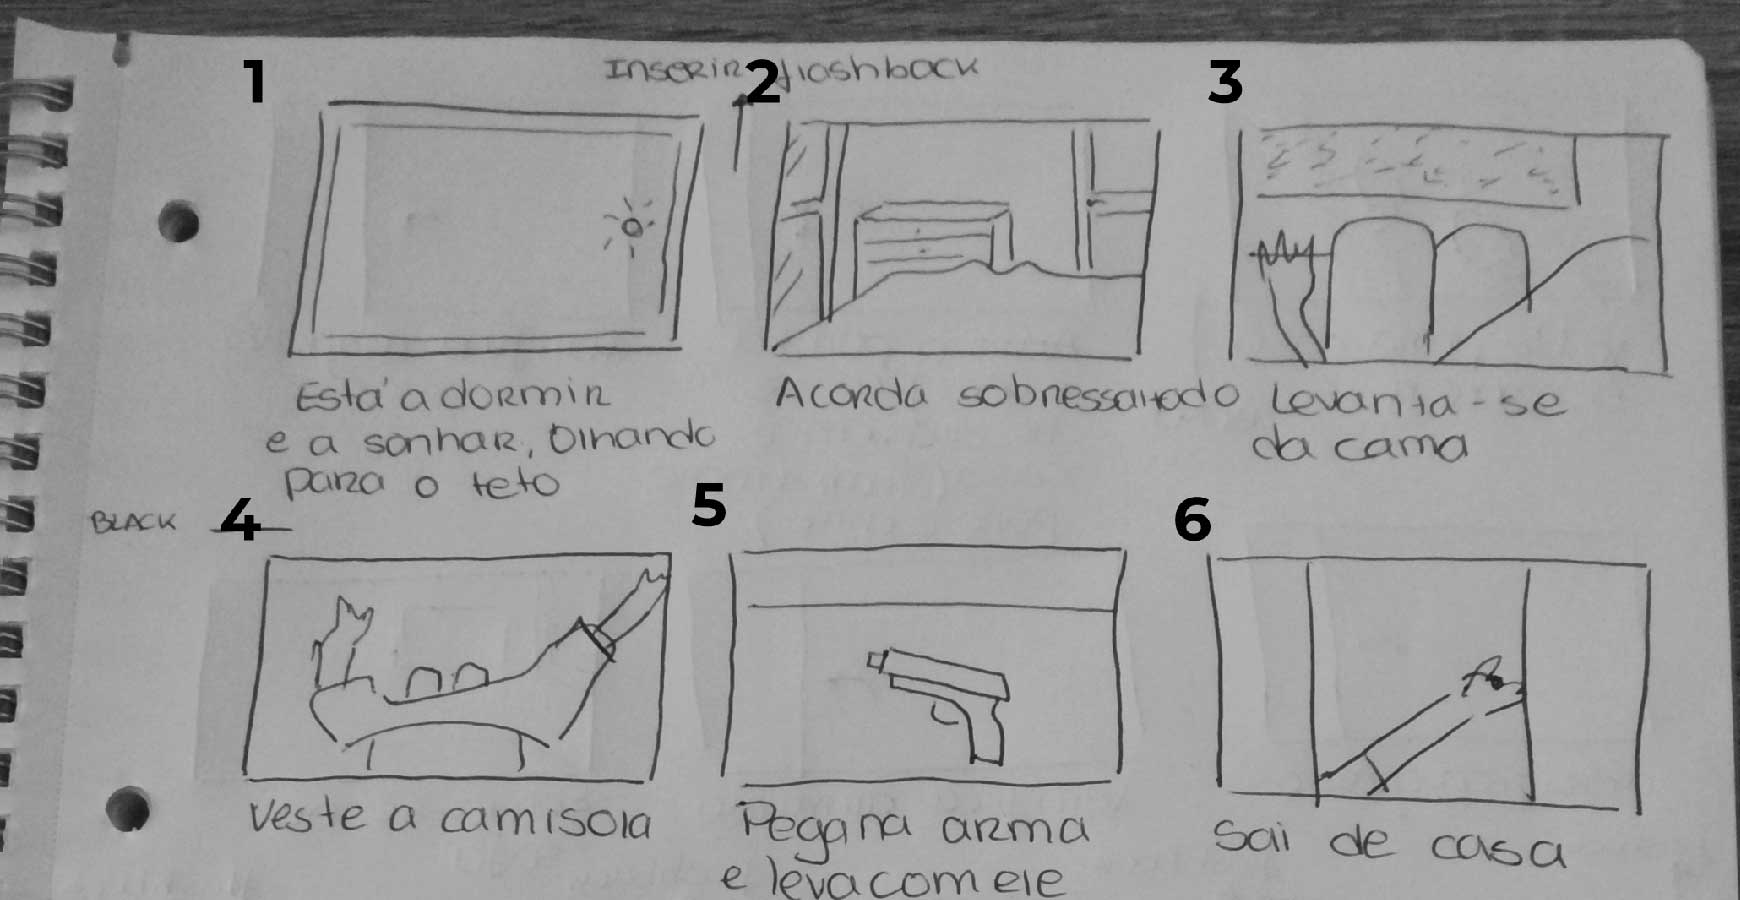 1
Inserir flashback
2
3
Está a dormir
e a sonhar, olhando
para o teto
Acorda sobressaltado
Levanta-se
da cama
BLACK
4
5
6
Veste a camisola
Pega na arma
e leva com ele
Sai de casa